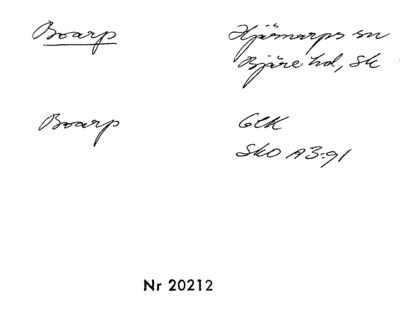 Boarp Hjärnarps sn
Bjäre hd, Sk
Boarp GEK
SkO A3:91
Nr 20212